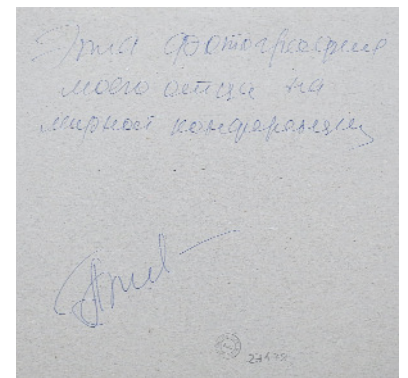 Эта фотография
моего отца на
мирной конференции
23478